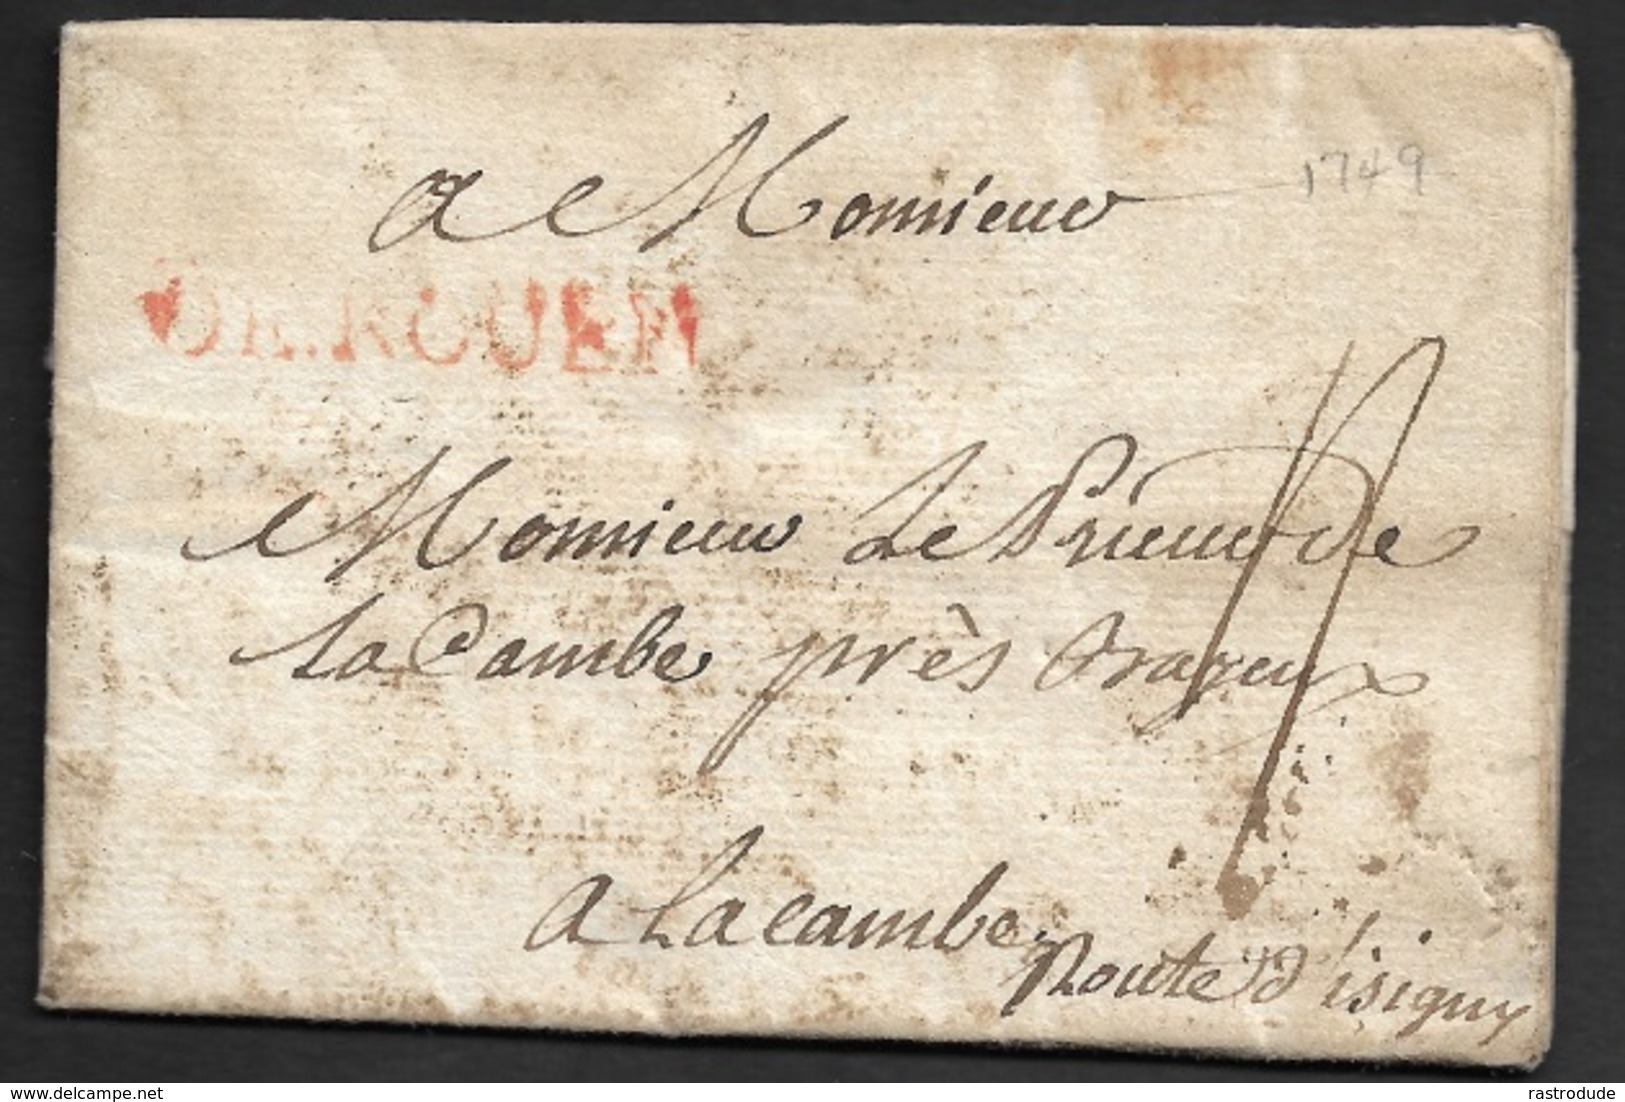 a Monsieur
1749
DE.ROUEN
Monsieur Le Prieur de
la Cambe près Bayeux
a la cambe.
Route d'isigny
delcampe.net
rastrodude